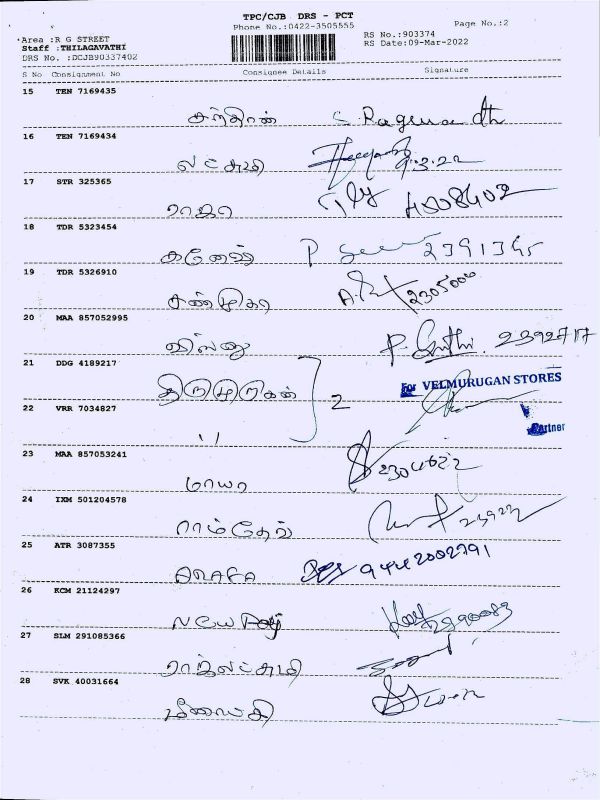 TPC/CJB DRS - PCT
Phone No.:0422-3505555
Page No.:2
Area :R G STREET
Staff :THILAGAVATHI
DRS No. :DCJB90337402
RS No.:903374
RS Date:09-Mar-2022
S No Consignment No Consignee Details Signature
15 TEN 7169435
S. Ragunandth
16 TEN 7169434
லட்சுமி 9.3.22
17 STR 325365
ராஜா
18 TDR 5323454
கணேஷ் 2391345
19 TDR 5326910
2305000
20 MAA 857052995
விஷ்ணு 2392717
21 DDG 4189217
திருமுருகன் 2
For VELMURUGAN STORES
22 VRR 7034827
"
Partner
23 MAA 857053241
மாயா 2304622
24 IXM 501204578
ராம்தேவ்
25 ATR 3087355
9442002791
26 KCM 21124297
27 SLM 291085366
ராஜலட்சுமி
28 SVK 40031664